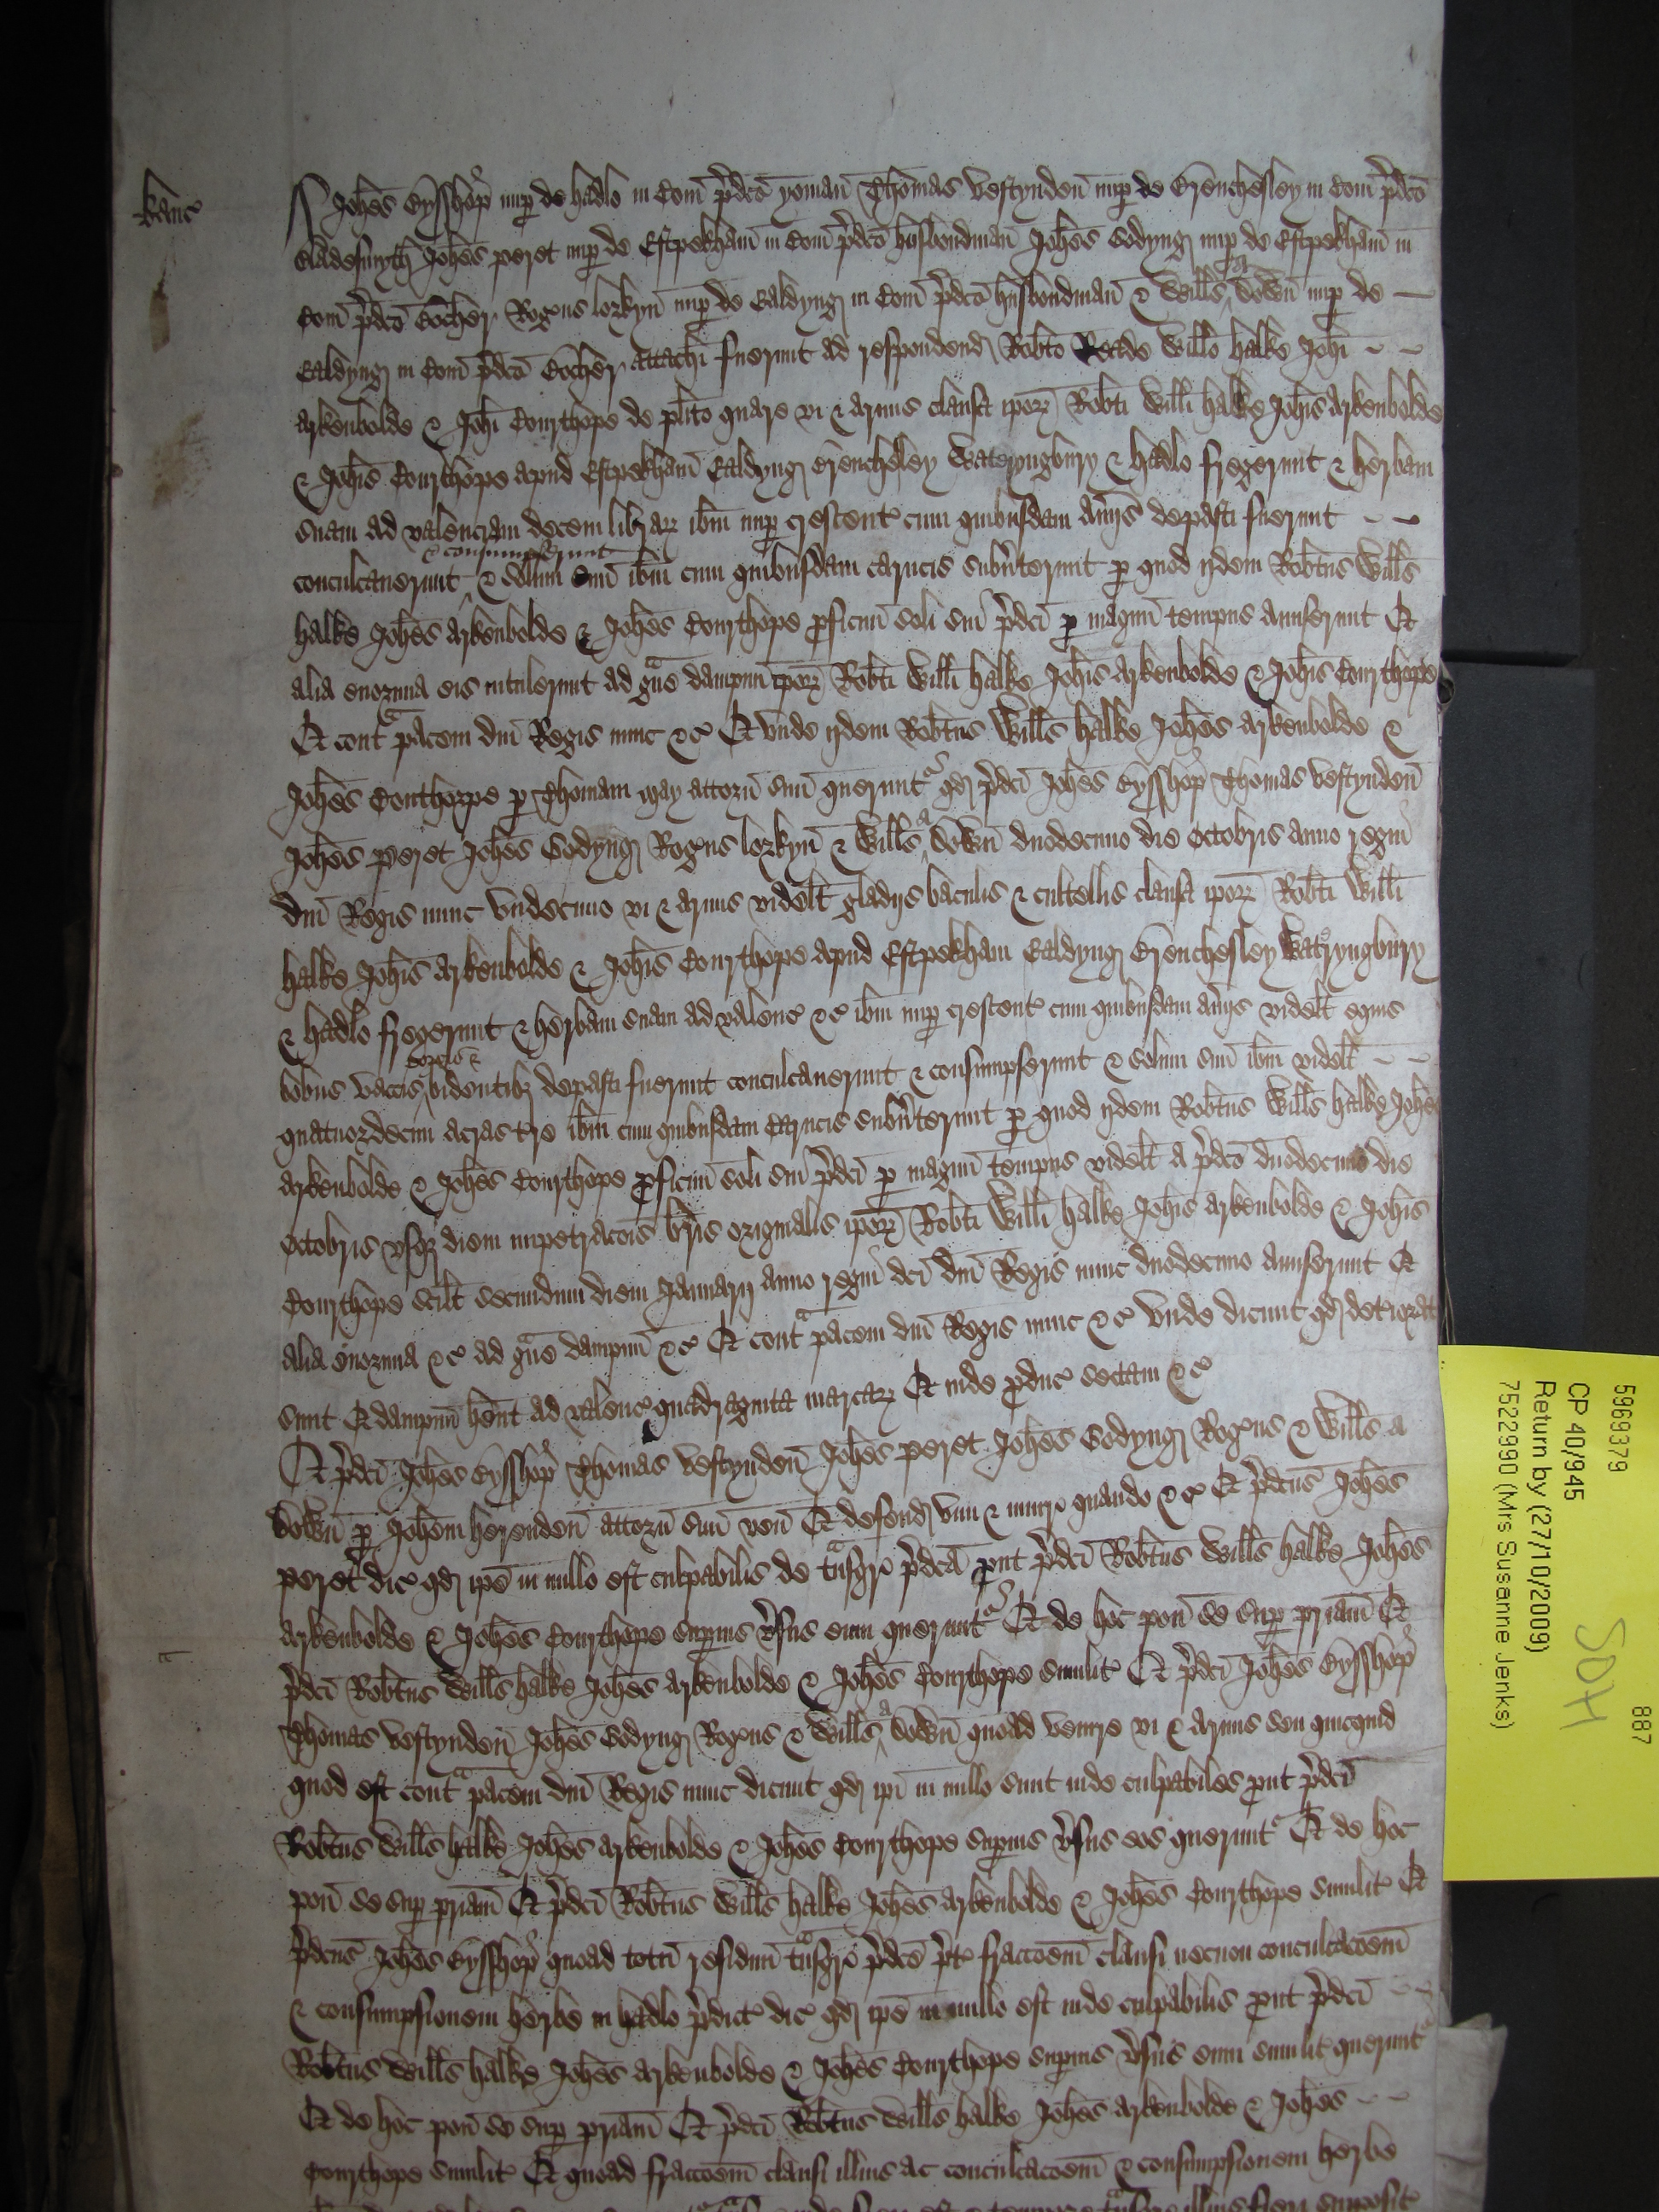 Kanc
Johes Bysshop nup de hadlo in Com pdco yoman Thomas Vestynden nup de Brenchesley in Com pdco
Bladesmyth Johes peret nup de Estpekham in Com pdco husbondman Johes Godyng nup de Estpekham in
Com pdco Bocher Rogus lorkyn nup de Ealdyng in Com pdco husbondman & Wills a Down nup de
Ealdyng in Com pdco Bocher attachi fuerunt ad respondend Robto Reade Willo halke Johi
Arkenbolde & Johi Courthope de plito quare vi & armis clausa ipor Robti Willi halke Johis Arkenbolde
& Johis Courthope apud Estpekham Ealdyng Brencheley Wateryngbury & hadlo fregerunt & herbam
suam ad valenciam decem librar ibm nup crescent cum quibusdam aviis depasti fuerunt
conculcaverunt & consumpserunt & solum suu ibm cum quibusdam carucis subvterunt p quod iidem Robtus Wills
halke Johes Arkenbolde & Johes Courthope pficuu soli sui pdci p magnu tempus amiserunt Et
alia enormia eis intulerunt ad gave dampnu ipor Robti Willi halke Johis Arkenbolde & Johis Courthope
Et conta pacem dni Regis nunc &c Et unde iidem Robtus Wills halke Johes Arkenbolde &
Johes Courthorpe p Thomam may attorn suu querunt qd pdci Johes Bysshop Thomas Vestynden
Johes peret Johes Godyng Rogus lorkyn & Wills a Down duodecimo die Octobris anno regni
dni Regis nunc undecimo vi & armis videlt gladiis baculis & cultellis clausa ipor Robti Willi
halke Johis Arkenbolde & Johis Courthope apud Estpekham Ealdyng Brenchesley Watryngbury
& hadlo fregerunt & herbam suam ad valenc &c ibm nup crescent cum quibusdam aviis videlt equis
bobus vaccis porcis & bidentib depasti fuerunt conculcaverunt & consumpserunt & solum suu ibm videlt
quatuordecim acras tre ibm cum quibusdam carucis subvterunt p quod iidem Robtus Wills halke Johes
Arkenbolde & Johes Courthope pficuu soli sui pdci p magnu tempus videlt a pdco duodecimo die
Octobris usq diem impetracois bris originalis ipor Robti Willi halke Johis Arkenbolde & Johis
Courthope scilt secundum diem Januarii anno regni dci dni Regis nunc duodecimo amiserunt Et
alia enormia &c ad gave dampnu &c Et conta pacem dni Regis nunc &c Unde dicunt qd deteriorat
sunt Et dampnu hent ad valenc quadraginta marcar Et inde pduc sectam &c
Et pdci Johes Bysshop Thomas Vestynden Johes peret Johes Godyng Rogus & Wills a
Down p Johem herenden attorn suu ven Et defend vim & iniur quando &c Et pdcus Johes
peret dic qd ipe in nullo est culpabilis de tansgr pdca put pdci Robtus Wills halke Johes
Arkenbolde & Johes Courthope supius vsus eum querunt Et de hoc pon se sup priam Et
pdci Robtus Wills halke Johes Arkenbolde & Johes Courthope similit Et pdci Johes Bysshop
Thomas Vestynden Johes Godyng Rogus & Wills a Down quoad venire vi & armis seu quicquid
quod est conta pacem dni Regis nunc dicunt qd ipi in nullo sunt inde culpabiles put pdci
Robtus Wills halke Johes Arkenbolde & Johes Courthope supius vsus eos querunt Et de hoc
pon se sup priam Et pdci Robtus Wills halke Johes Arkenbolde & Johes Courthope similit Et
pdcus Johes Bysshop quoad totu residuu tansgr pdce pt fraccoem clausi necnon conculcacoem
& consumpsionem herbe in hadlo pdict dic qd ipe in nullo est inde culpabilis put pdci
Robtus Wills halke Johes Arkenbolde & Johes Courthope supius vsus eum similit querunt
Et de hoc pon se sup priam Et pdci Robtus Wills halke Johes Arkenbolde & Johes
Courthope similit Et quoad fraccoem clausi illius ac conculcacoem & consumpsionem herbe
5969379 887
CP 40/945 SDH
Return by (27/10/2009)
7522990 (Mrs Susanne Jenks)